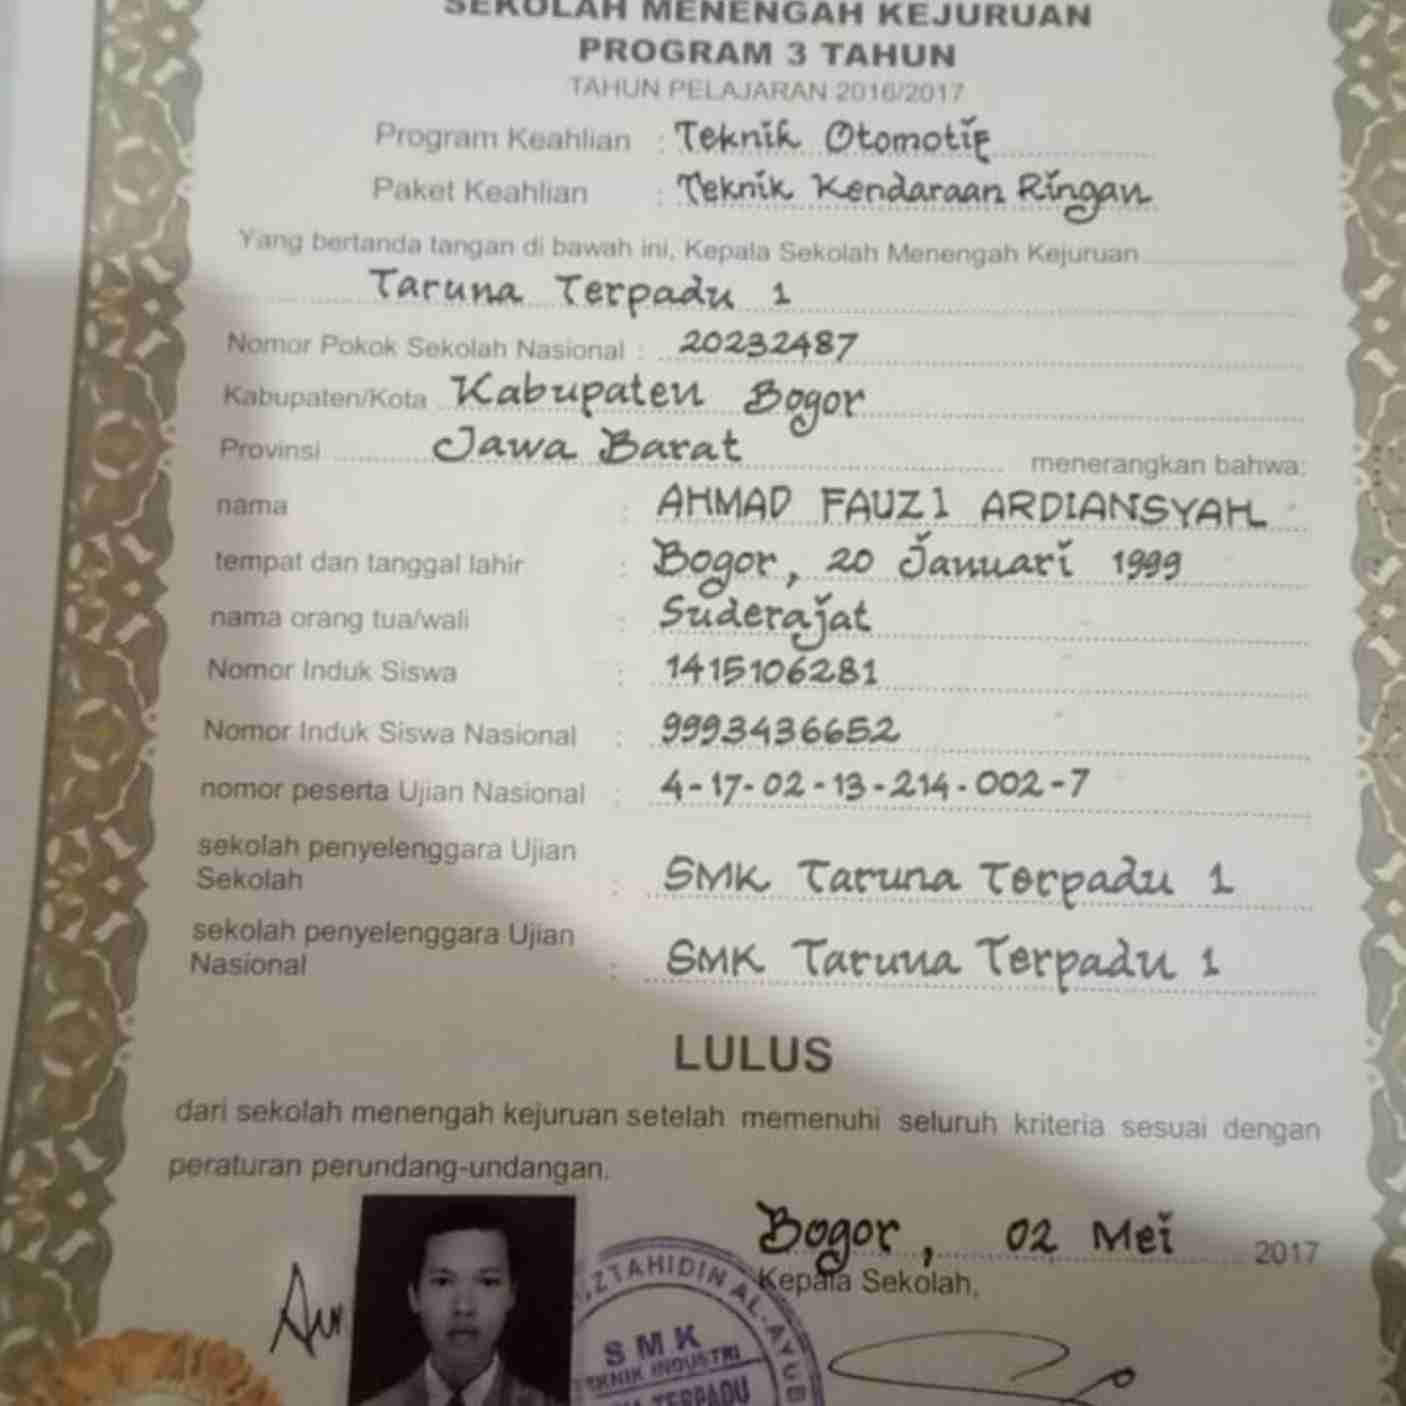 SEKOLAH MENENGAH KEJURUAN
PROGRAM 3 TAHUN
TAHUN PELAJARAN 2016/2017
Program Keahlian : Teknik Otomotif
Paket Keahlian : Teknik Kendaraan Ringan
Yang bertanda tangan di bawah ini, Kepala Sekolah Menengah Kejuruan
Taruna Terpadu 1
Nomor Pokok Sekolah Nasional : 20232487
Kabupaten/Kota Kabupaten Bogor
Provinsi Jawa Barat menerangkan bahwa:
nama : AHMAD FAUZI ARDIANSYAH
tempat dan tanggal lahir : Bogor, 20 Januari 1999
nama orang tua/wali : Suderajat
Nomor Induk Siswa : 1415106281
Nomor Induk Siswa Nasional : 9993436652
nomor peserta Ujian Nasional : 4-17-02-13-214-002-7
sekolah penyelenggara Ujian
Sekolah : SMK Taruna Terpadu 1
sekolah penyelenggara Ujian
Nasional : SMK Taruna Terpadu 1
LULUS
dari sekolah menengah kejuruan setelah memenuhi seluruh kriteria sesuai dengan
peraturan perundang-undangan.
Bogor, 02 Mei 2017
Kepala Sekolah,
AL-AYUB
SMK
TEKNIK INDUSTRI
TERPADU